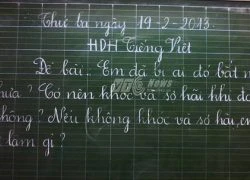 Thứ ba ngày 19-2-2013
HDH Tiếng Việt
Đề bài: Em đã bị ai đó bắt n
ưa? Có nên khóc và sợ hãi khi đó
không? Nếu không khóc và sợ hãi, em
làm gì?
VTC NEWS